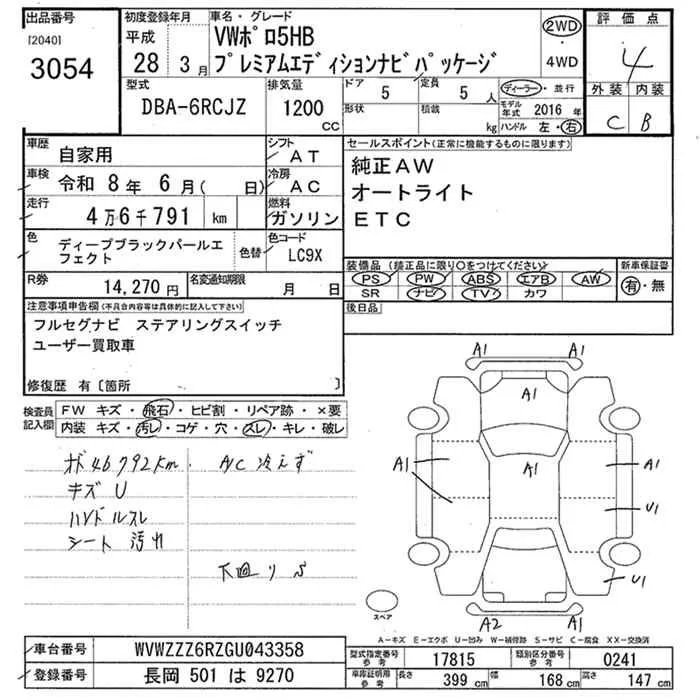 出品番号
[2040]
3054
初度登録年月
平成
28 3月
車名・グレード
VWポロ5HB
プレミアムエディションナビパッケージ
2WD
・
4WD
評価点
4
外装 内装
C B
型式
DBA-6RCJZ
排気量
1200
CC
ドア
5
定員
5人
形状
積載
kg
ディーラー・並行
モデル年式 2016年
ハンドル 左・右
車歴
自家用
シフト
AT
車検
令和 8年 6月( 日)
冷房
AC
走行
4万6千791 km
燃料
ガソリン
色
ディープブラックパールエフェクト
色替
色コード
LC9X
R券
14,270円
名変通知期限
月 日
セールスポイント(正常に機能するものに限ります)
純正AW
オートライト
ETC
装備品(純正品に限り○をつけてください)
PS PW ABS エアB AW
SR ナビ TV カワ
新車保証書
有・無
後日品
注意事項申告欄(不具合内容等は具体的に記入して下さい)
フルセグナビ ステアリングスイッチ
ユーザー買取車
修復歴 有〔箇所 〕
検査員記入欄
FW キズ・飛石・ヒビ割・リペア跡・×要
内装 キズ・汚レ・コゲ・穴・スレ・キレ・破レ
46792km. A/C 冷えず
キズU
ハンドルスレ
シート 汚れ
下廻りS
A1 A1
A1
A1 A1 A1
U1
U1
A2 A1
スペア
A-キズ E-エクボ U-凹み W-補修跡 S-サビ C-腐食 XX-交換済
車台番号
WVWZZZ6RZGU043358
登録番号
長岡 501 は 9270
型式指定番号
参考
17815
類別区分番号
参考
0241
車庫証明用
参考
長さ 399 cm 幅 168 cm 高さ 147 cm